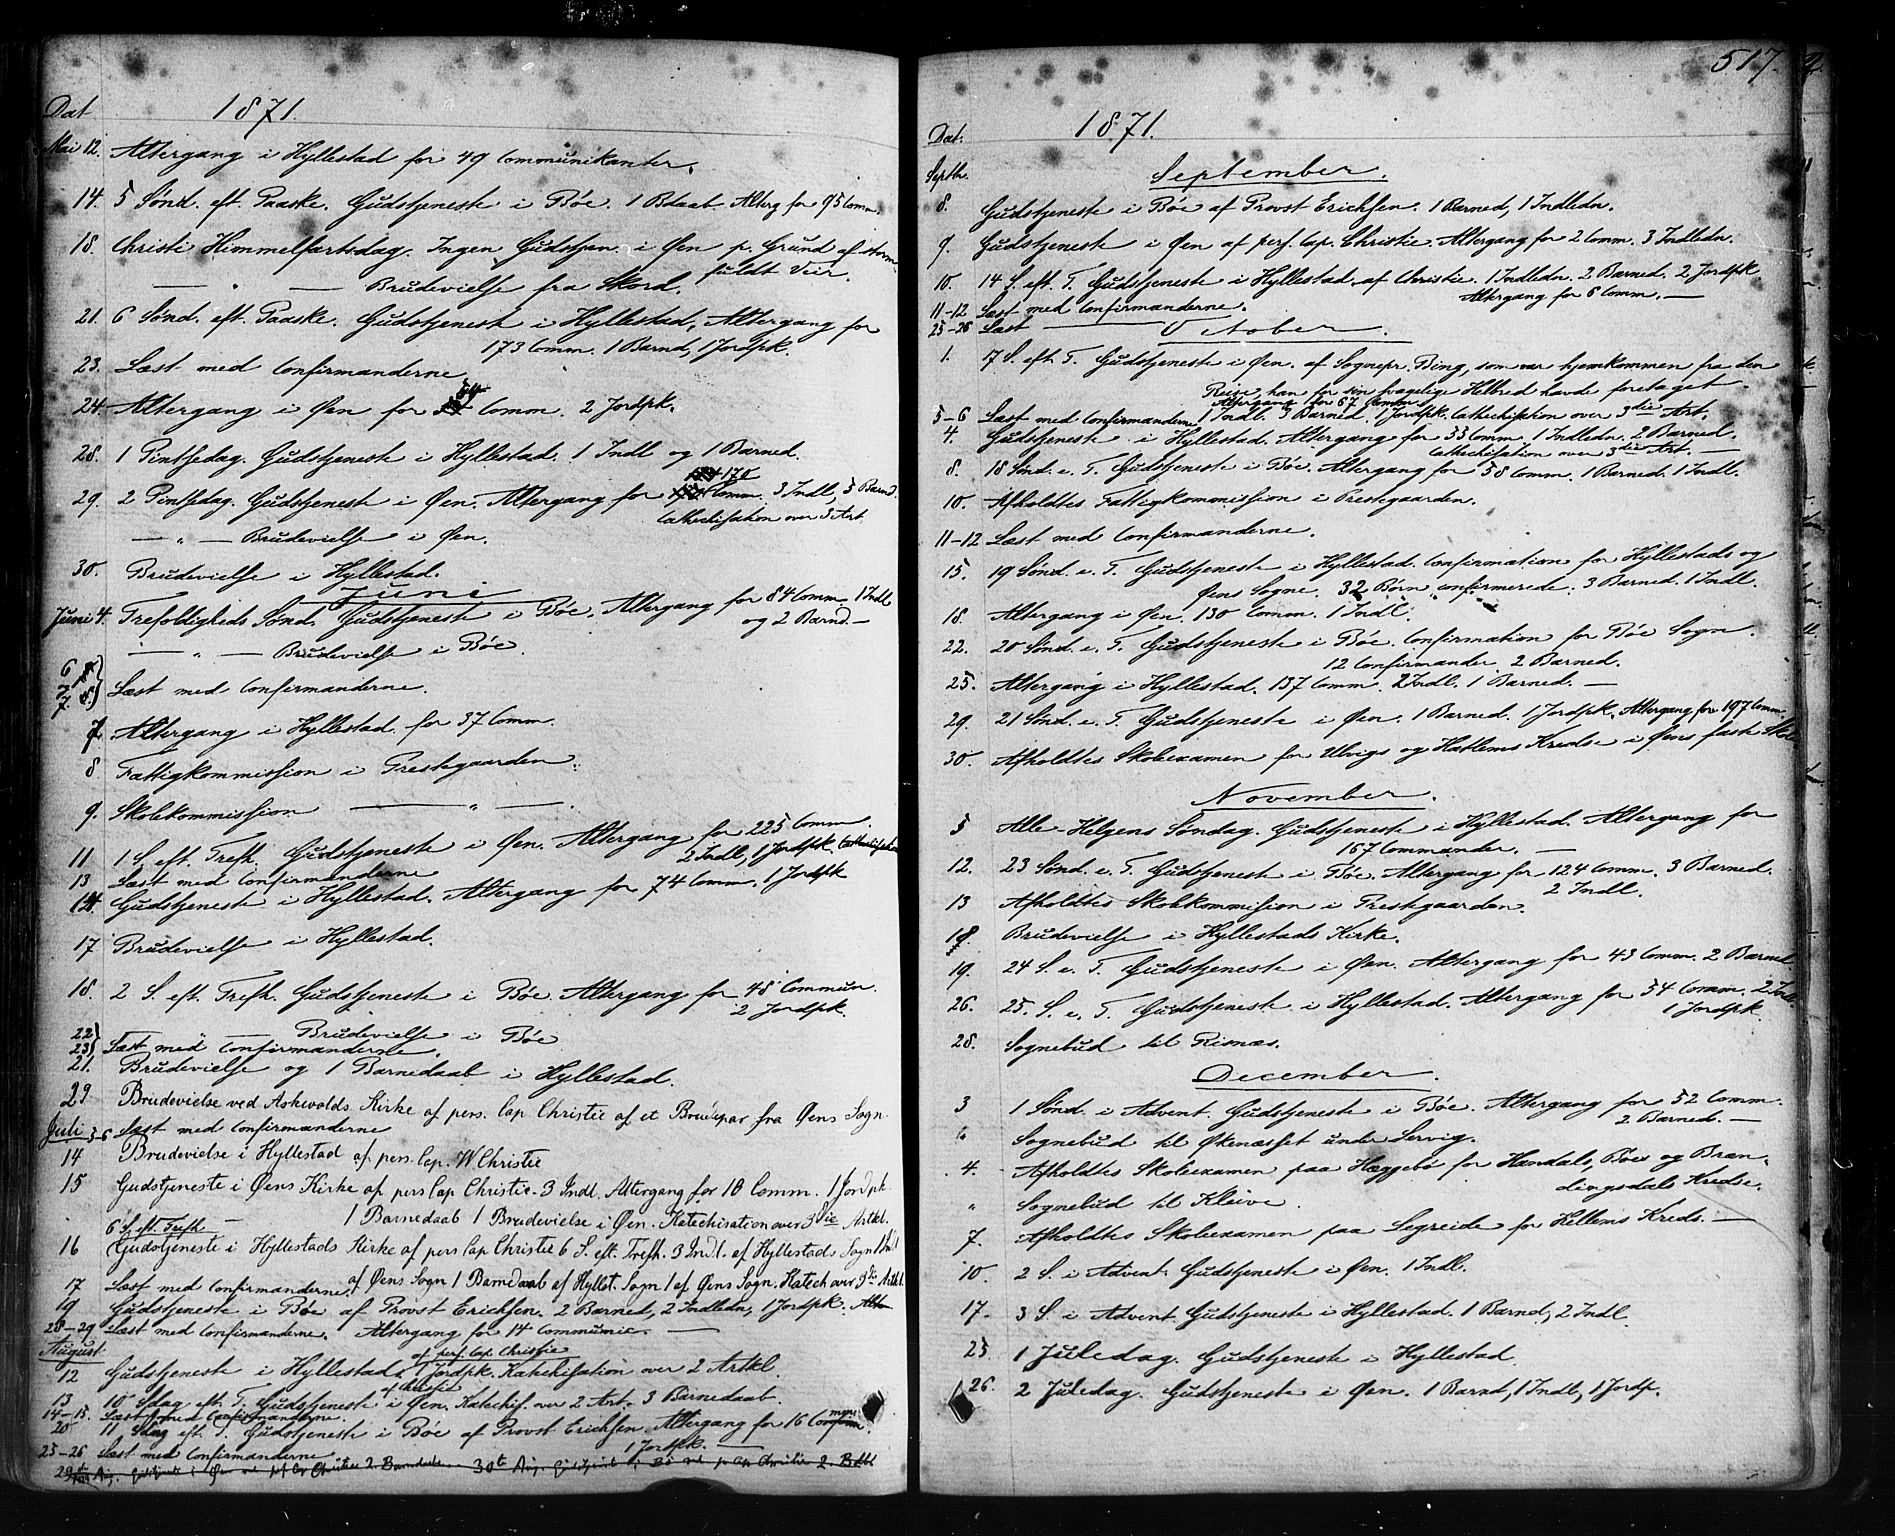 Dat 1871.
Mai 12. Altergang i Hyllestad for 49 Communikanter.
14. 5 Sønd. eft. Paaske. Gudstjeneste i Bøe. 1 Bdaab. Alterg for 95 Comm.
18. Christi Himmelfartsdag. Ingen Gudstjen. i Øen p. Grund af storm-
fuldt Veir.
— " — Brudevielse fra Skord.
21. 6 Sønd. eft. Paaske. Gudstjeneste i Hyllestad, Altergang for
173 Comm. 1 Barnd, 1 Jordpk.
23. Læst med Confirmanderne
24. Altergang i Øen for Comm. 2 Jordpk.
28. 1 Pintsedag. Gudstjeneste i Hyllestad. 1 Indl og 1 Barned.
29. 2 Pintsedag. Gudstjeneste i Øen. Altergang for 170 Comm. 3 Indl, 5 Barnd.
Cathechisation over 3 Art
— " — Brudevielse i Øen.
30. Brudevielse i Hyllestad.
Juni
Juni 4. Trefoldigheds Sønd. Gudstjeneste i Bøe. Altergang for 84 Comm 1 Indl
og 2 Barnd. —
— " — Brudevielse i Bøe.
6
7 Læst med Confirmanderne.
7. Altergang i Hyllestad for 37 Comm.
8. Fattigkommission i Prestegaarden.
9. Skolekommission — " —.
11 1 S. eft. Trefh. Gudstjeneste i Øen. Altergang for 225 Comm.
2 Indl, 1 Jordpk. Cathechisation
13 Læst med Confirmanderne
14. Gudstjeneste i Hyllestad. Altergang for 74 Comm. 1 Jordpk
17 Brudevielse i Hyllestad.
18. 2 S. eft. Trefh. Gudstjeneste i Bøe. Altergang for 48 Commun.
2 Jordpk.
— " — Brudevielse i Bøe
22 23 Læst med Confirmanderne.
21. Brudevielse og 1 Barnedaab i Hyllestad.
29 Brudevielse ved Askevolds Kirke af pers. Cap Christie af et Brudepar fra Øens Sogn
Juli 5-6 Læst med Confirmanderne
14 Brudevielse i Hyllestad af pers. Cap. W Christie
15 Gudstjeneste i Øens Kirke af pers Cap Christie. 3 Indl. Altergang for 10 Comm. 1 Jordpk
1 Barnedaab 1 Brudevielse i Øen. Katechisation over 3die Artkl.
6 S. eft Trefh —
16 Gudstjeneste i Hyllestads Kirke af pers Cap Christie 6 S. eft. Trefh. 3 Indl. af Hyllestads Sogn 1 Indl
af Øens Sogn 1 Barnedaab af Hyllst. Sogn 1 af Øens Sogn. Katech over 3die Artkl.
17 Læst med Confirmanderne.
19 Gudstjeneste i Bøe af Provst Erichsen. 2 Barned, 2 Indledn, 1 Jordpk.
28-29 Læst med Confirmanderne. Altergang for 14 Communic. —
August
af pers Cap Christie
12 Gudstjeneste i Hyllestad. 1 Jordpk. Katechisation over 2 Artkl.
af Christie
13 10 Sdag eft. T. Gudstjeneste i Øen. Katechis. over 2 Art. 3 Barnedaab.
14-15. Læst med Confirmanderne.
20 11 Sdag eft. T. Gudstjeneste i Bøe af Provst Erichsen. Altergang for 16 Comm.
1 Jordpk. —
25-26 Læst med Confirmanderne
517.
Dat. 1871.
Septbr. September.
8. Gudstjeneste i Bøe af Provst Erichsen. 1 Barned, 1 Indledn.
9. Gudstjeneste i Øen af pers. Cap. Christie. Altergang for 2 Comm. 3 Indledn.
10. 14 S. eft. T. Gudstjeneste i Hyllestad af Christie. 1 Indledn. 2 Barned. 2 Jordpk
Altergang for 6 Comm. —
11-12 Læst med Confirmanderne.
25-26 Læst —
October.
1. 17 S. eft. T. Gudstjeneste i Øen. af Sognepr. Bing, som var hjemkommen fra den
Reise, han for sin svagelige Helbred havde foretaget.
Altergang for 67 Comm.
5-6 Læst med Confirmanderne 1 Indl. 3 Barned. 1 Jordpk. Cathechisation over 3die Art.
4. Gudstjeneste i Hyllestad. Altergang for 33 Comm. 1 Indledn. 2 Barned.
Cathechisation over 3die Art. —
8. 18 Sønd. e. T. Gudstjeneste i Bøe. Altergang for 58 Comm. 1 Barned. 1 Indl.
10. Afholdtes Fattigkommission i Prestegaarden.
11-12 Læst med Confirmanderne.
15. 19 Sønd. e. T. Gudstjeneste i Hyllestad. Confirmation for Hyllestads og
Øens Sogne. 32 Børn confirmerede. 3 Barned. 1 Indl.
18. Altergang i Øen. 130 Comm. 1 Indl.
22. 20 Sønd. e. T. Gudstjeneste i Bøe. Confirmation for Bøe Sogn.
12 Confirmander. 2 Barned.
25. Altergang i Hyllestad. 137 Comm. 2 Indl. 1 Barned. —
29. 21 Sønd. e. T. Gudstjeneste i Øen. 1 Barned. 1 Jordpk. Altergang for 197 Comm.
30. Afholdtes Skoleexamen for Ulvigs og Hatlems Kredse i Øens faste Skole
November.
5 Alle Helgens Søndag. Gudstjeneste i Hyllestad. Altergang for
167 Commander. —
12. 23 Sønd. e. T. Gudstjeneste i Bøe. Altergang for 124 Comm. 3 Barned.
2 Indl.
13 Afholdtes Skolekommission i Prestegaarden.
18. Brudevielse i Hyllestads Kirke.
19. 24 S. e. T. Gudstjeneste i Øen. Altergang for 43 Comm. 2 Barned.
26. 25. S. e. T. Gudstjeneste i Hyllestad. Altergang for 54 Comm. 2 Indl.
1 Jordpk.
28. Sognebud til Risnæs.
December.
3 1 Sønd. i Advent. Gudstjeneste i Bøe. Altergang for 52 Comm.
2 Barned. —
" Sognebud til Økenæsset under Lervig.
4. Afholdtes Skoleexamen paa Hæggebø for Handals, Bøes og Bræn-
dingsdals Kredse.
" Sognebud til Kleive.
7. Afholdtes Skoleexamen paa Segreide for Hellems Kreds. —
10. 2 S. i Advent. Gudstjeneste i Øen. 1 Indl.
17. 3 S. i Advent. Gudstjeneste i Hyllestad. 1 Barned, 2 Indl.
25. 1 Juledag. Gudstjeneste i Hyllestad.
26. 2 Juledag. Gudstjeneste i Øen. 1 Barnd, 1 Indl, 1 Jordp.